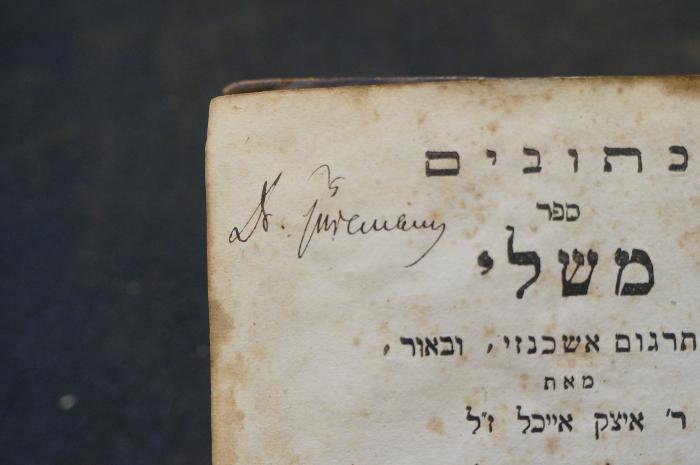 כתובים
Dr. Güdemann
ספר
משלי
תרגום אשכנזי, ובאור,
מאת
ר' איצק אייכל ז"ל